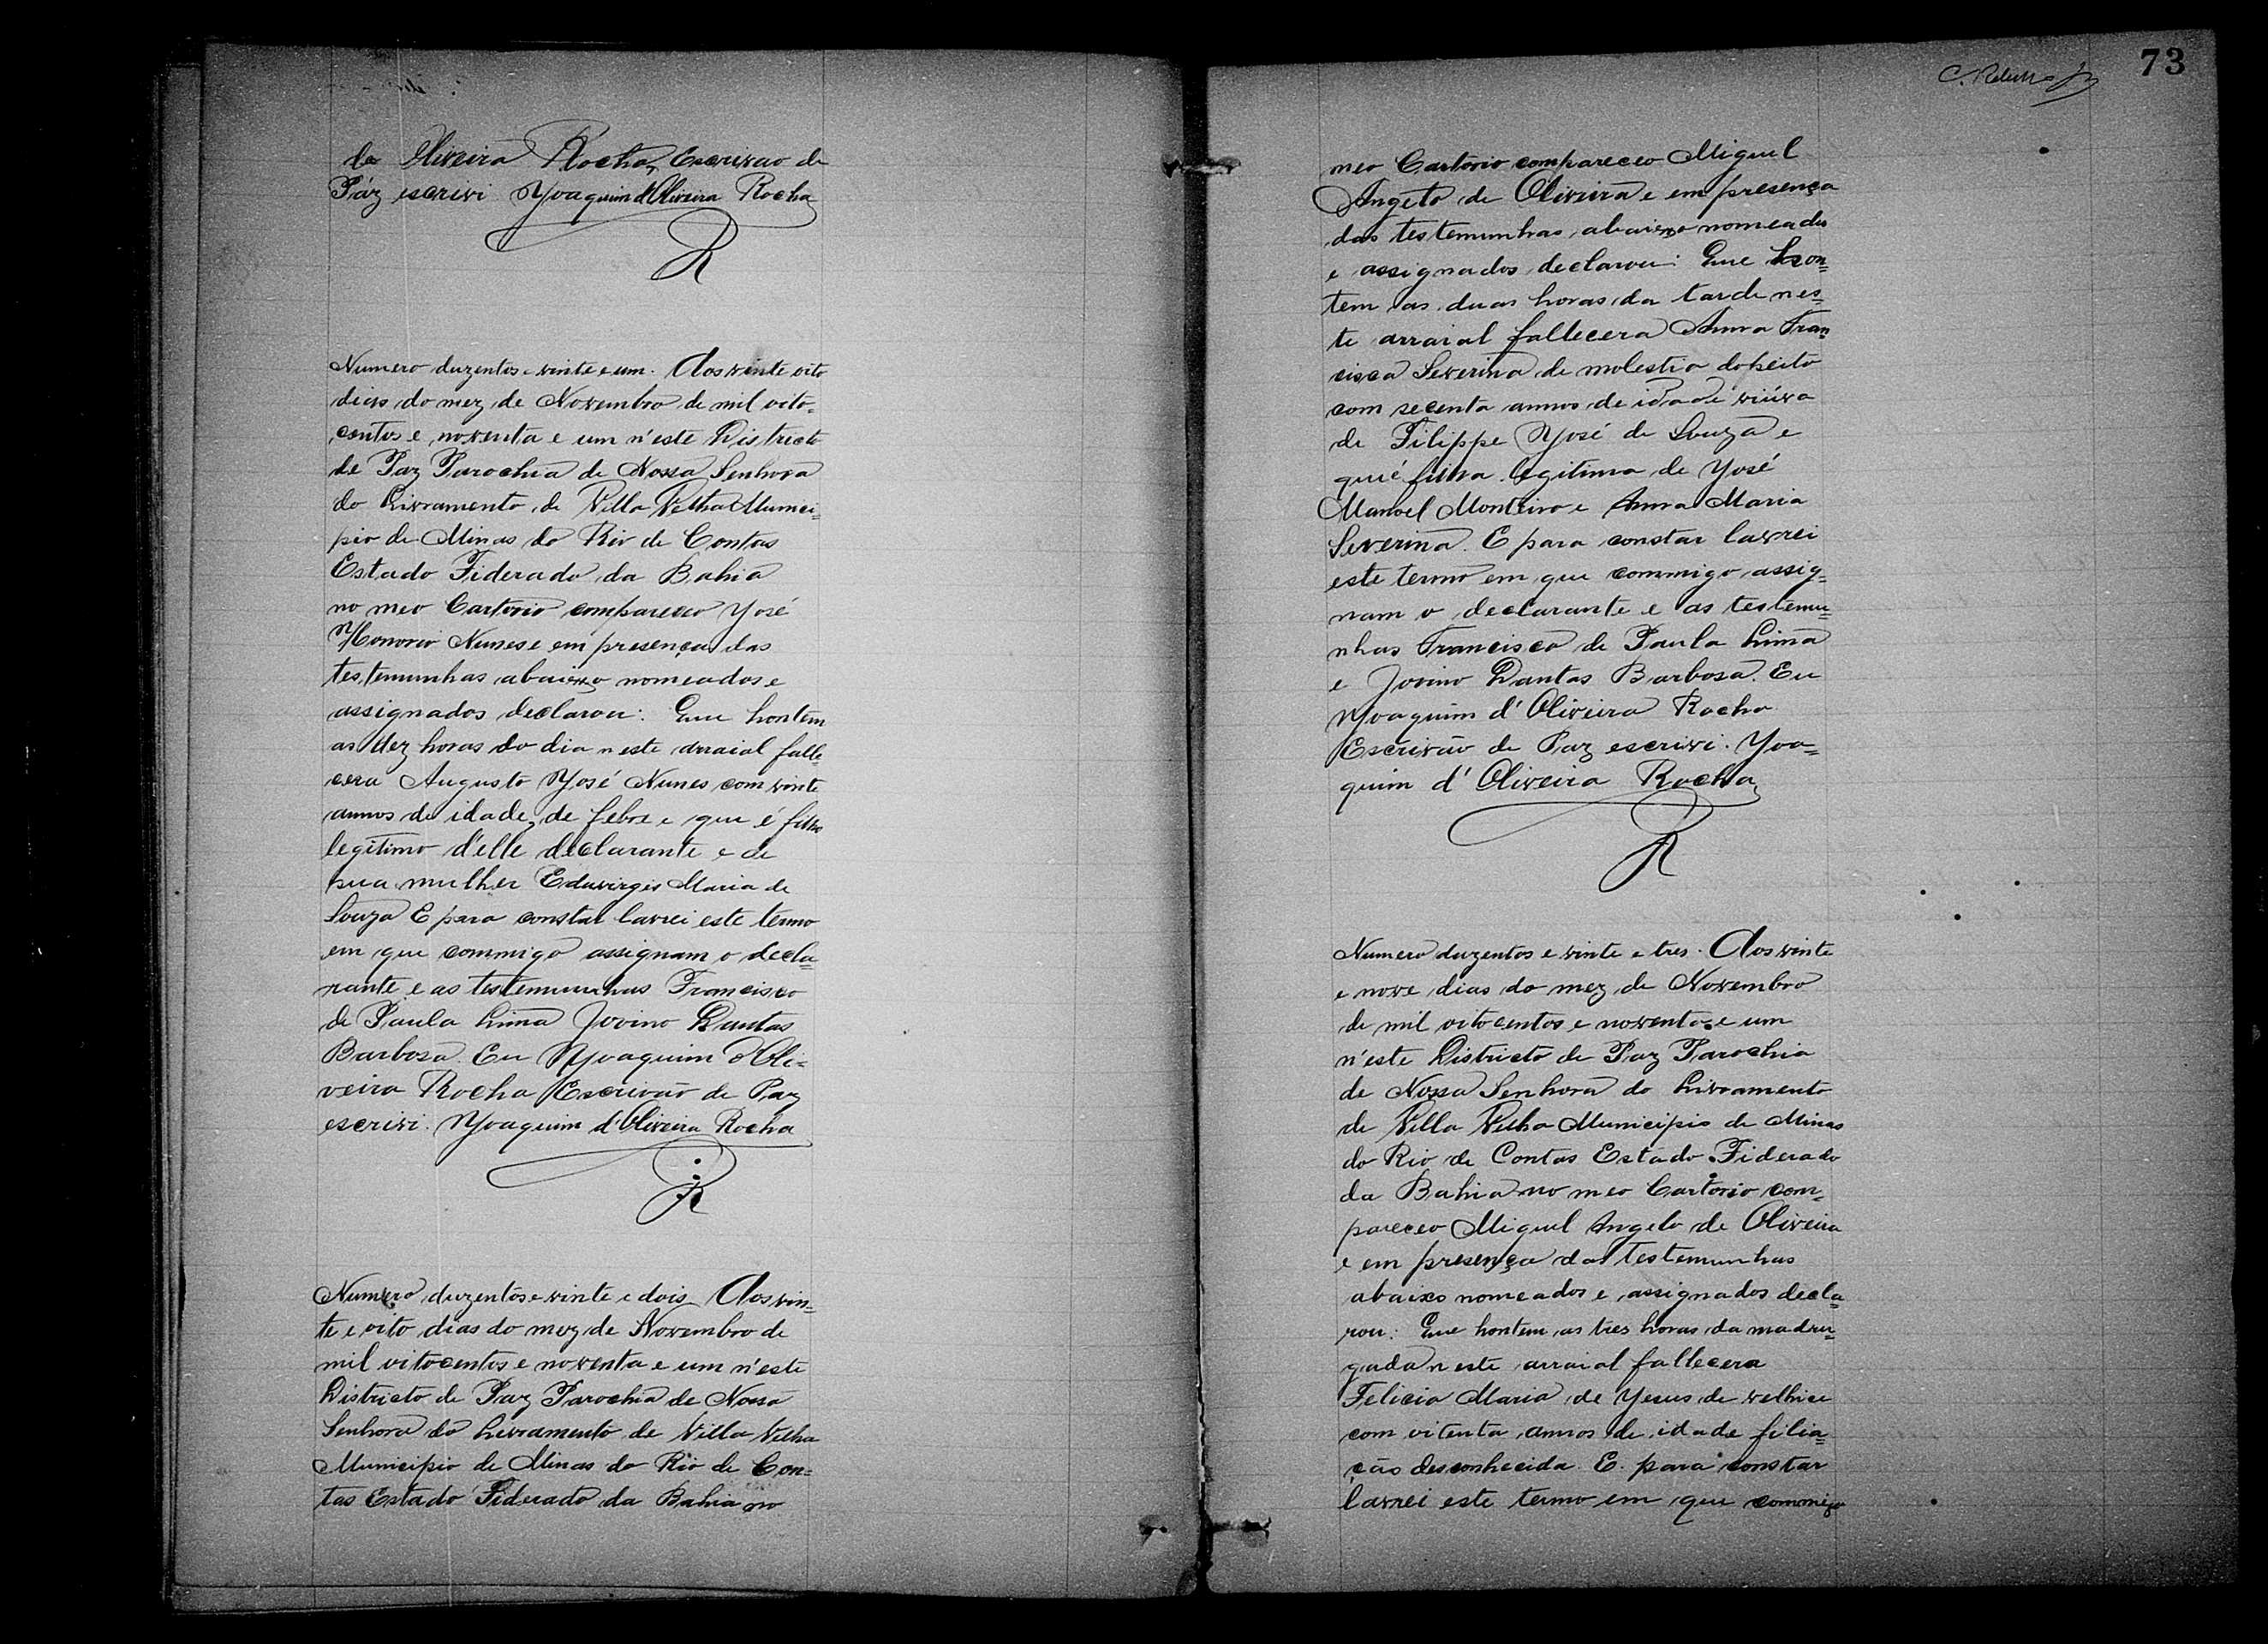 de Oliveira Rocha, Escrivão de
Páz escrivi Joaquim d'Oliveira Rocha
R
Numero duzentos e vinte e um. Aos vinte oito
dias do mez de Novembro de mil oito-
centos e noventa e um n'este Districto
de Paz Parochia de Nossa Senhora
do Livramento de Villa Velha Munici=
pio de Minas do Rio de Contas
Estado Fiderado da Bahia
no meo Cartorio compareceo José
Honorio Nunes e em presença das
testemunhas abaixo nomeados e
assignados declarou: Que hontem
as dez horas do dia n este arraial falle=
cera Augusto José Nunes com vinte
annos de idade, de febre e que é filho
legitimo d'elle declarante e de
sua mulher Eduvirges Maria de
Souza E para constar lavrei este termo
em que commigo assignam o decla=
rante e as testemunhas Francisco
de Paula Lima Jovino Dantas
Barbosa. Eu Joaquim d'Oli-
veira Rocha Escrivão de Paz
escrivi. Joaquim d'Oliveira Rocha
R
Numero duzentos e vinte e dois Aos vin=
te e oito dias do mez de Novembro de
mil oitocentos e noventa e um n'este
Districto de Paz Parochia de Nossa
Senhora do Livramento de Villa Velha
Municipio de Minas do Rio de Con=
tas Estado Fiderado da Bahia no
73
meo Cartorio compareceo Miguel
Angelo de Oliveira e em presença
das testemunhas abaixo nomeados
e assignados declarou: Que hon=
tem as duas horas da tarde nes=
te arraial fallecera Anna Fran
cisca Severina de molestia do peito
com secenta annos de idade viúva
de Filippe José de Souza e
que é filha legitima de José
Manoel Monteiro e Anna Maria
Severina. E para constar lavrei
este termo em que commigo assig=
nam o declarante e as testemu=
nhas Francisco de Paula Lima
e Jovino Dantas Barbosa. Eu
Joaquim d'Oliveira Rocha
Escrivão de Paz escrivi. Joa=
quim d'Oliveira Rocha
R
Numero duzentos e vinte e tres. Aos vinte
e nove dias do mez de Novembro
de mil oitocentos e noventa e um
n'este Districto de Paz Parochia
de Nossa Senhora do Livramento
de Villa Velha Municipio de Minas
do Rio de Contas Estado Fiderado
da Bahia no meo Cartorio com=
pareceo Miguel Angelo de Oliveira
e em presença das testemunhas
abaixo nomeados e assignados decla=
rou: Que hontem as tres horas da madru=
gada n este arraial fallecera
Felicia Maria de Jesus de velhice
com oitenta annos de idade filia=
ção desconhecida. E para constar
lavrei este termo em que commigo